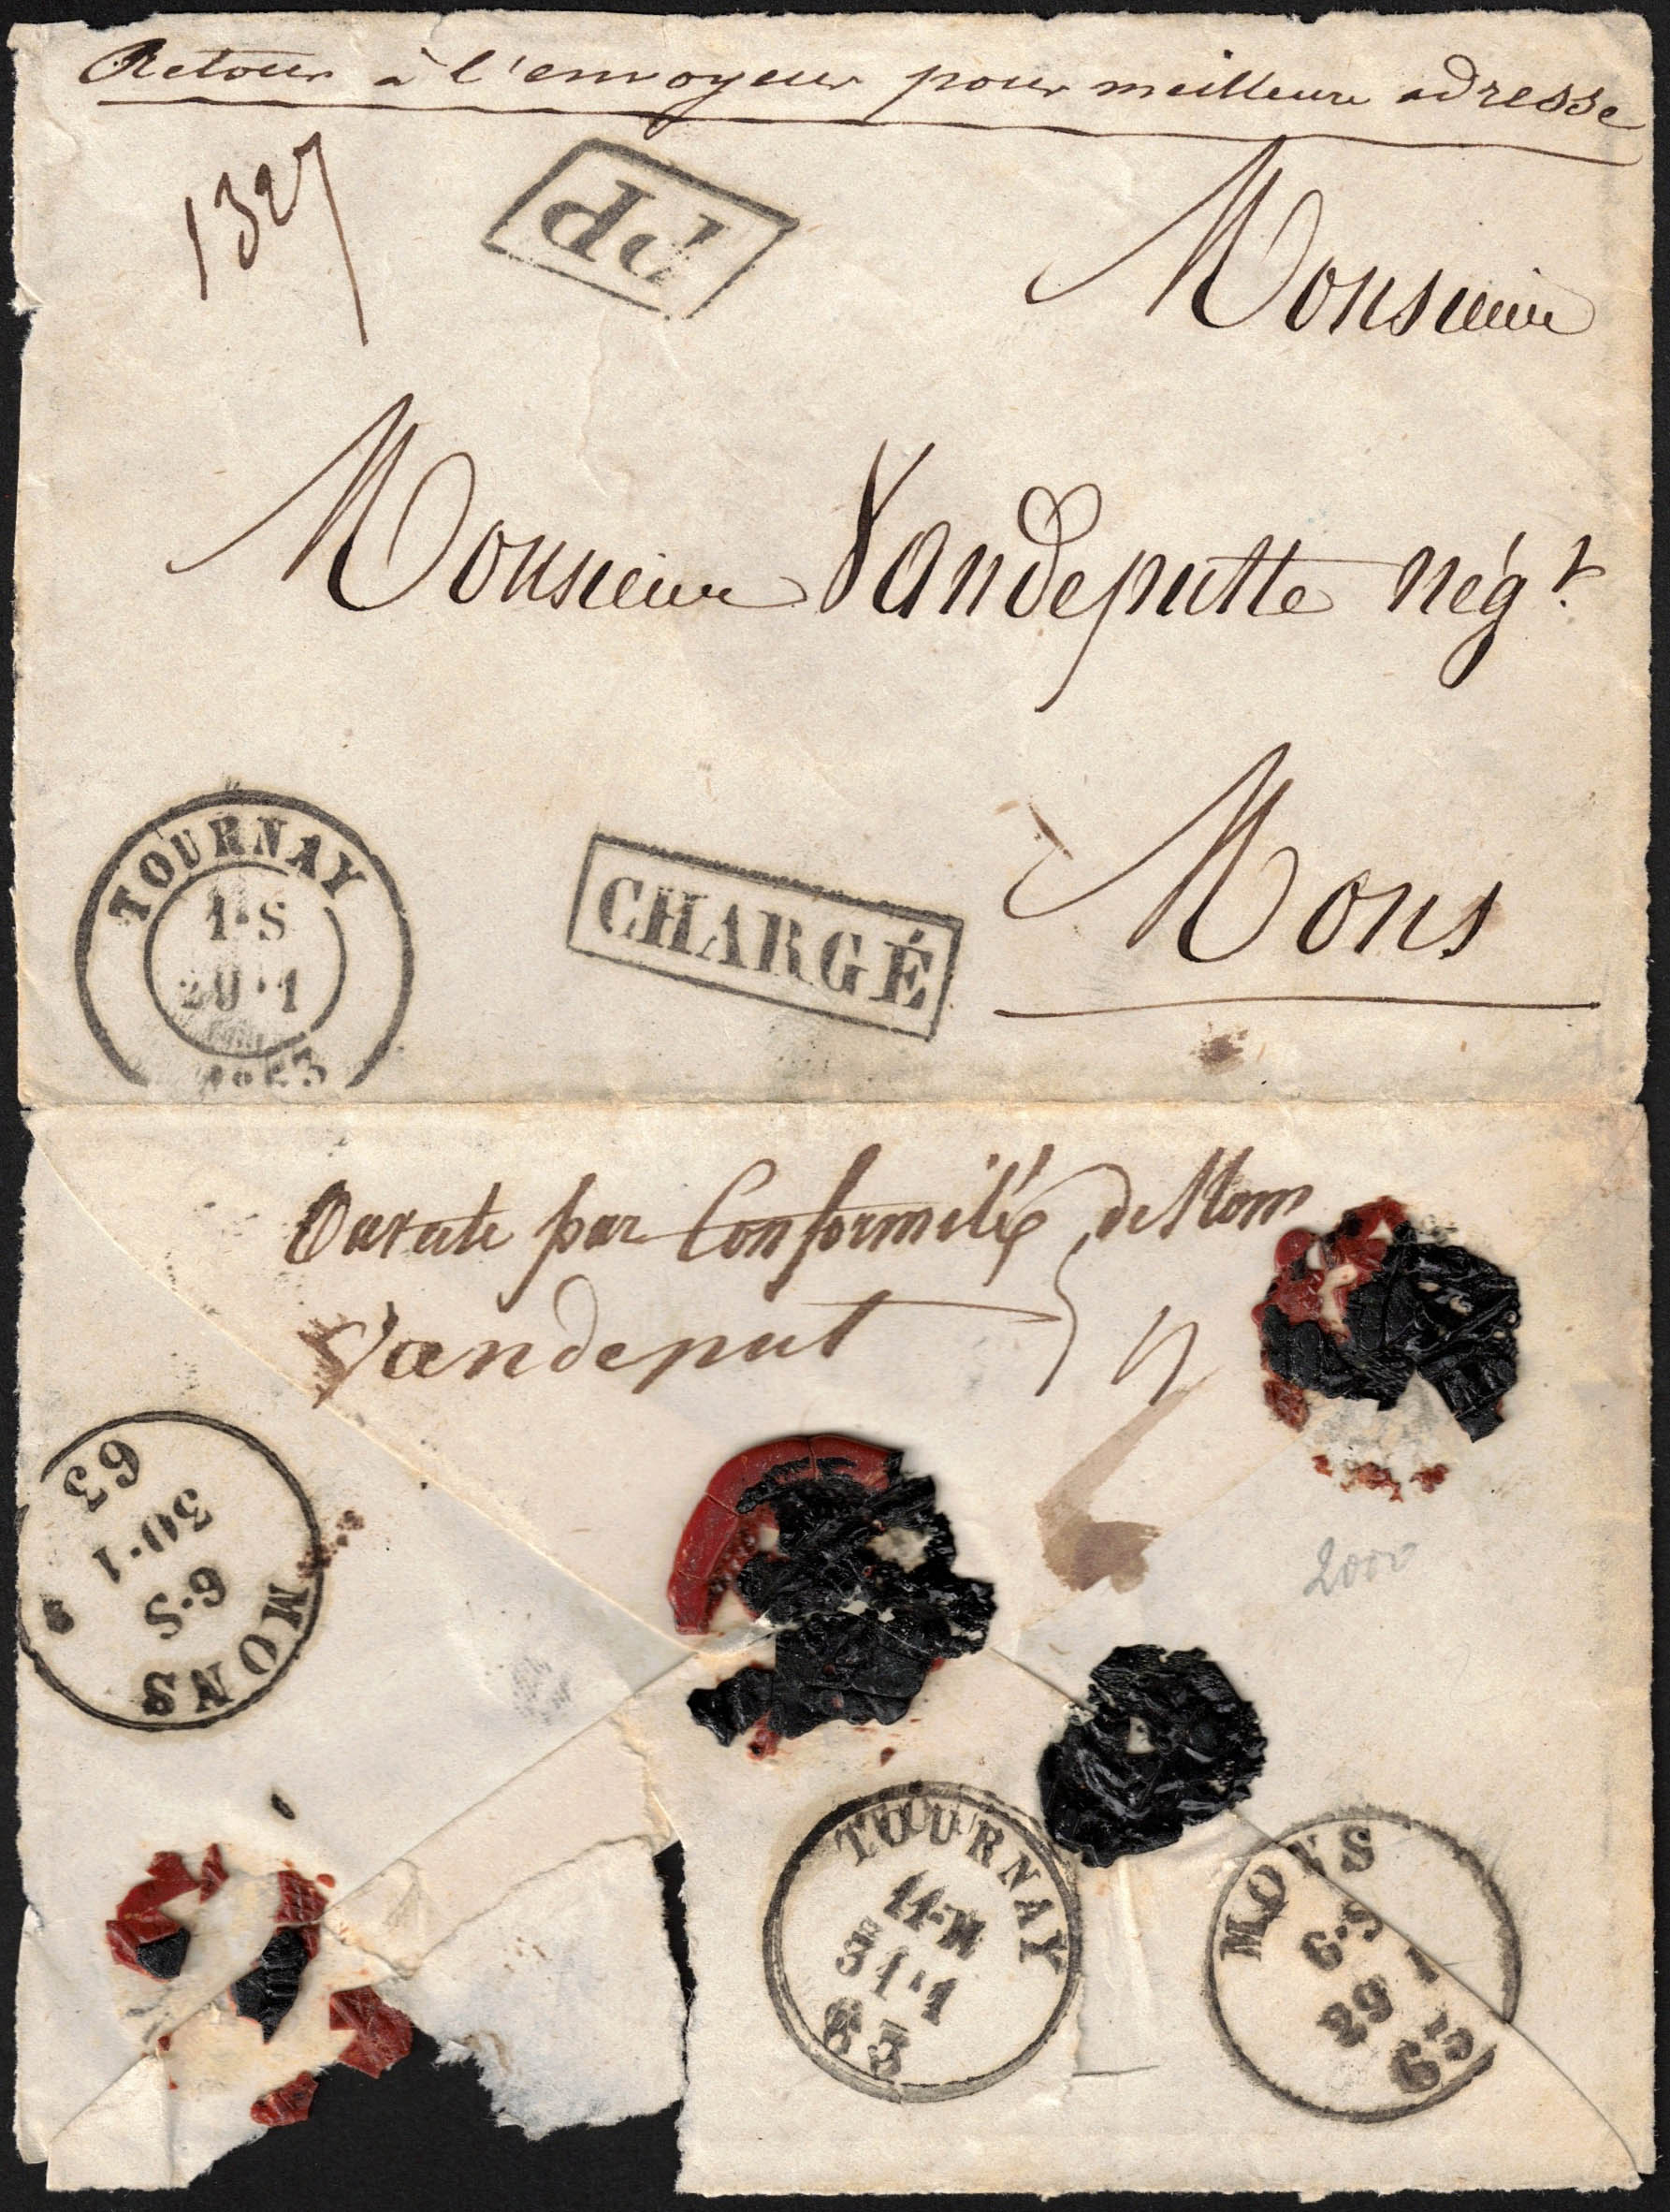 Retour à l'envoyeur pour meilleure adresse
1327
PP
Monsieur
Monsieur Vandeputte négt.
Mons
TOURNAY
1·S
29·1
1863
CHARGÉ
Ouverte par Conformité de Nom
Vandeput
MONS
6·S
30·1
63
2000
TOURNAY
11-M
31·1
63
MONS
6·S
29 1
63